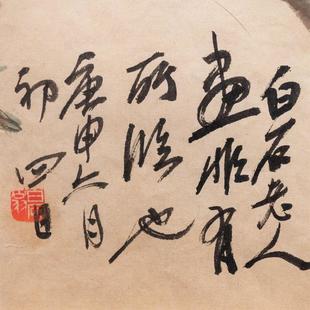 白石老人
画眼有
所悟也
庚申六月
初四日